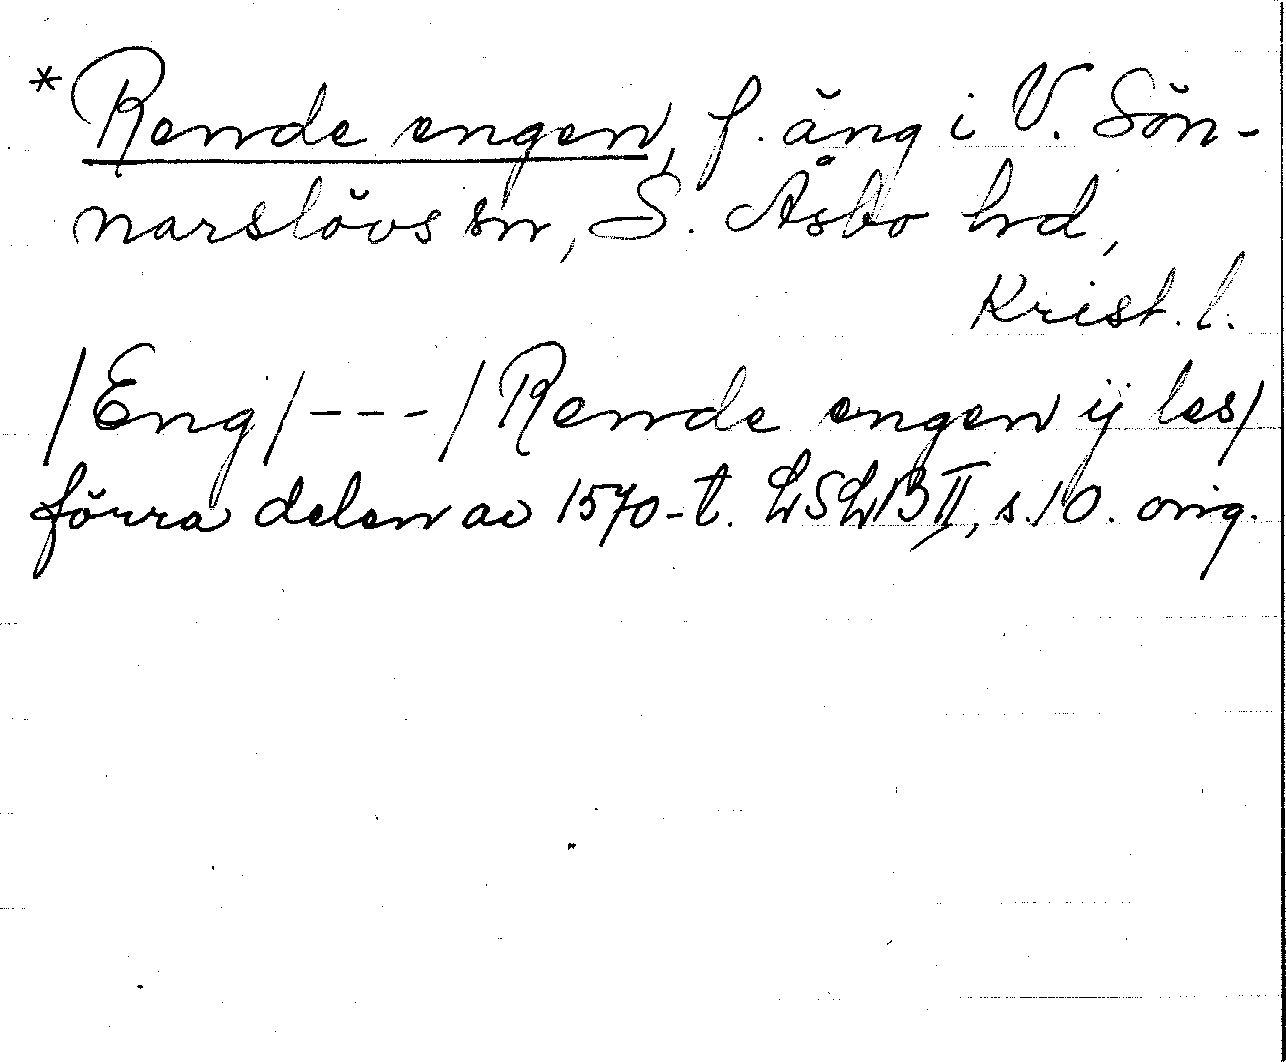 * Rende engen, f. äng i V. Sön-
narslövs sn, S. Åsbo hd,
Krist. l.
/Eng/---/Rende engen ij les/
förra delen av 1570-t. LSLB II, s. 10. orig.